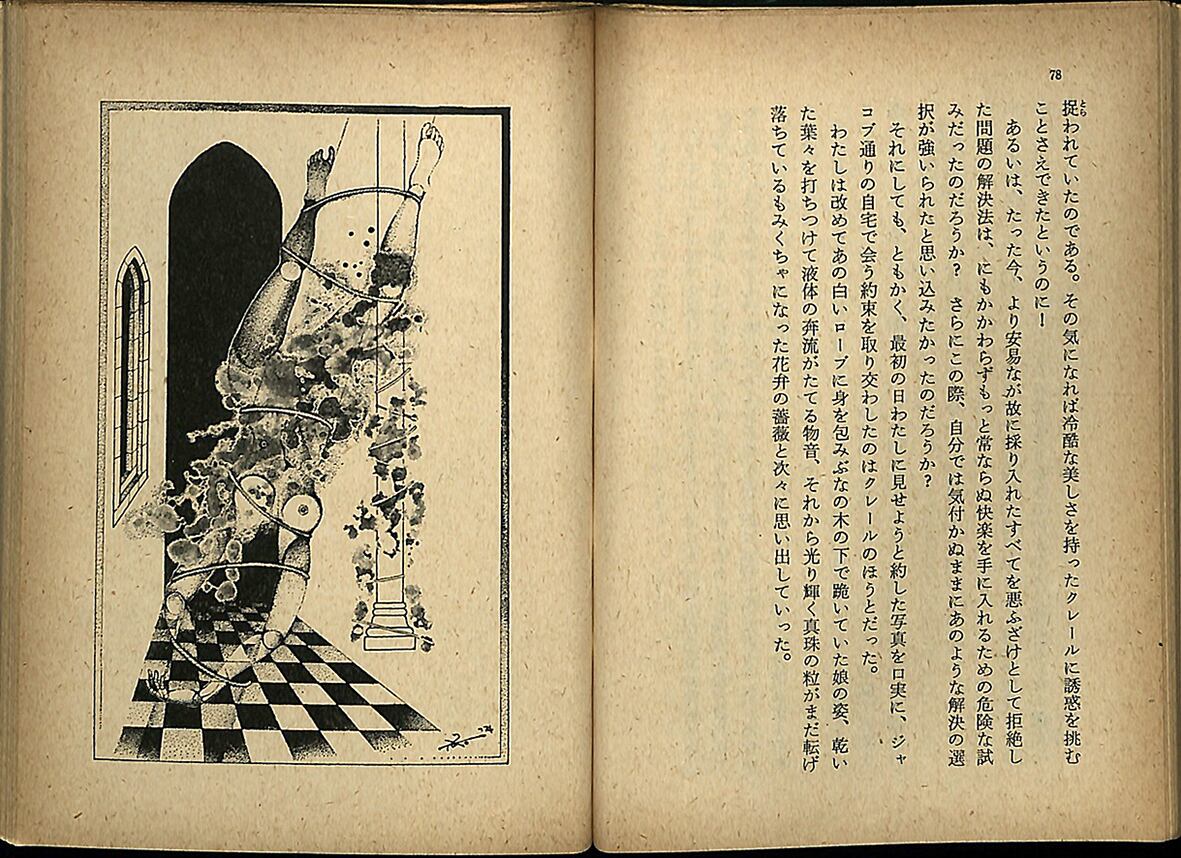 78
捉われていたのである。その気になれば冷酷な美しさを持ったクレールに誘惑を挑む
とら
ことさえできたというのに！
あるいは、たった今、より安易なが故に採り入れたすべてを悪ふざけとして拒絶し
た問題の解決法は、にもかかわらずもっと常ならぬ快楽を手に入れるための危険な試
みだったのだろうか？　さらにこの際、自分では気付かぬままにあのような解決の選
択が強いられたと思い込みたかったのだろうか？
それにしても、ともかく、最初の日わたしに見せようと約した写真を口実に、ジャ
コブ通りの自宅で会う約束を取り交わしたのはクレールのほうとだった。
わたしは改めてあの白いローブに身を包みぶなの木の下で跪いていた娘の姿、乾い
た葉々を打ちつけて液体の奔流がたてる物音、それから光り輝く真珠の粒がまだ転げ
落ちているもみくちゃになった花弁の薔薇と次々に思い出していった。